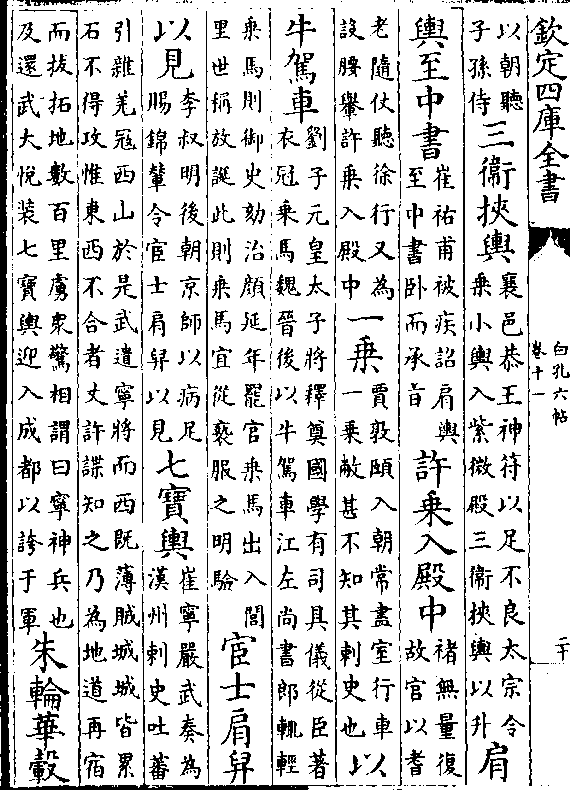 欽定四庫全書
白孔六帖
卷十一
二十
以朝聽
子孫侍
三衞挾輿
襄邑恭王神符以足不良太宗令
乗小輿入紫微殿三衞挾輿以升
肩
輿至中書
崔祐甫被疾詔肩輿
至中書卧而承旨
許乗入殿中
褚無量復
故官以耆
老隨仗聽徐行又為
設腰轝許乗入殿中
一乗
賈敦頤入朝常盡室行車
一乗敝甚不知其刺史也
以
牛駕車
劉子元皇太子將釋奠國學有司具儀從臣著
衣冠乗馬魏晉後以牛駕車江左尚書郎輒輕
乗馬則御史劾治顔延年罷官乗馬出入閭
里世稱放誕此則乗馬宜從䙝服之明驗
宦士肩舁
以見
李叔明後朝京師以病足
賜錦輦令宦士肩舁以見
七寶輿
崔寧嚴武奏為
漢州刺史吐蕃
引雜羌冦西山於是武遣寧將而西既薄賊城城皆累
石不得攻惟東西不合者丈許諜知之乃為地道再宿
而拔拓地數百里虜衆驚相謂曰寧神兵也
及還武大悦装七寶輿迎入成都以誇于軍
朱輪華轂